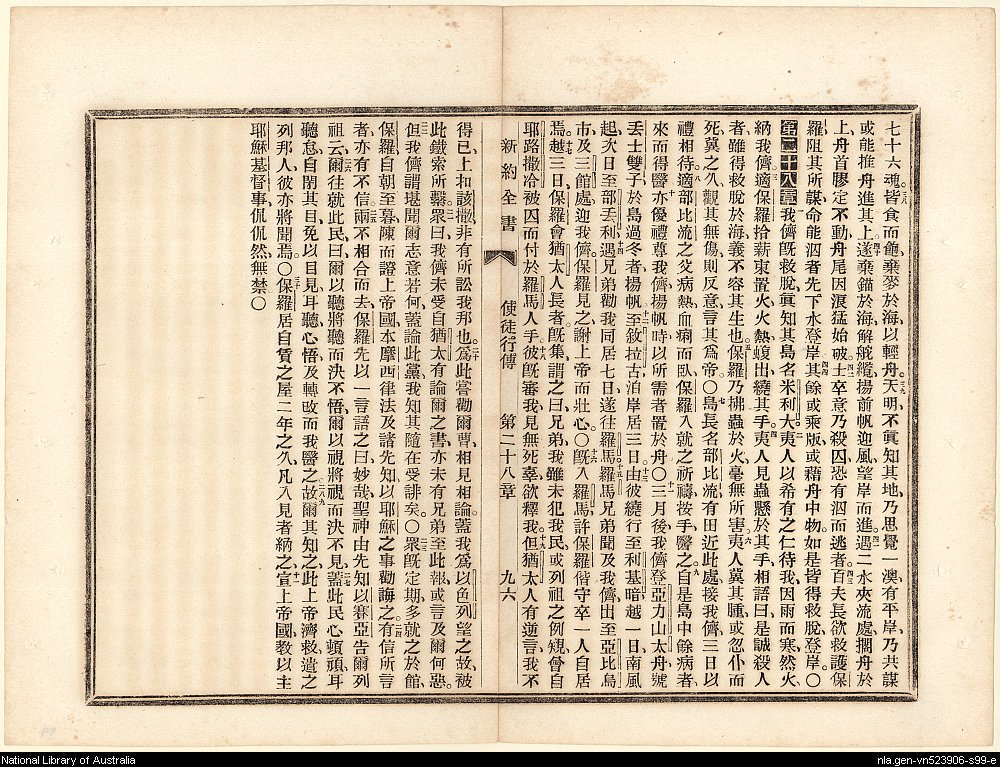 七十六魂皆食而飽棄麥於海以輕舟天明不眞知其地乃思覺一澳有平岸乃共謀
或能推舟進其上遂棄錨於海解舵纜揚前帆迎風望岸而進遇二水夾流處擱舟於
上舟首膠定不動舟尾因浪猛始破士卒意乃殺囚恐有泅而逃者百夫長欲救護保
羅阻其所謀命能泅者先下水登岸其餘或乘版或藉舟中物如是皆得救脫登岸〇
第二十八章我儕旣救脫眞知其島名米利大夷人以希有之仁待我因雨而寒然火
納我儕適保羅拾薪束置火火熱蝮出繞其手夷人見蟲懸於其手相語曰是誠殺人
者雖得救脫於海義不容其生也保羅乃拂蟲於火毫無所害夷人冀其腫或忽仆而
死冀之久觀其無傷則反意言其爲帝〇島長名部比流有田近此處接我儕三日以
禮相待適部比流之父病熱血痢而臥保羅入就之祈禱按手醫之自是島中餘病者
來而得醫亦優禮尊我儕揚帆時以所需者置於舟〇三月後我儕登亞力山太舟號
丟士雙子於島過冬者揚帆至敘拉古泊岸居三日由彼繞行至利基暗越一日南風
起次日至部丟利遇兄弟勸我同居七日遂往羅馬羅馬兄弟聞及我儕出至亞比烏
市及三館處迎我儕保羅見之謝上帝而壯心〇旣入羅馬許保羅偕守卒一人自居
焉越三日保羅會猶太人長者旣集謂之曰兄弟我雖未犯我民或列祖之例規曾自
耶路撒冷被囚而付於羅馬人手彼旣審我見無死辜欲釋我但猶太人有逆言我不
新約全書 使徒行傳 第二十八章 九六
得已上扣該撒非有所訟我邦也爲此嘗勸爾曹相見相論蓋我爲以色列望之故被
此鐵索所繫衆曰我儕未受自猶太有論爾之書亦未有兄弟至此報或言及爾何惡
但我儕謂堪聞爾志意若何蓋論此黨我知其隨在受誹矣〇衆旣定期多就之於館
保羅自朝至暮陳而證上帝國本摩西律法及諸先知以耶穌之事勸誨之有信所言
者亦有不信兩不相合而去保羅先以一言語之曰妙哉聖神由先知以賽亞告爾列
祖云爾往就此民曰爾以聽將聽而決不悟爾以視將視而決不見蓋此民心頑頑耳
聽怠自閉其目免以目見耳聽心悟及轉改而我醫之故爾其知之此上帝濟救遣之
列邦人彼亦將聞焉〇保羅居自賃之屋二年之久凡入見者納之宣上帝國教以主
耶穌基督事侃侃然無禁〇
National Library of Australia
nla.gen-vn523906-s99-e